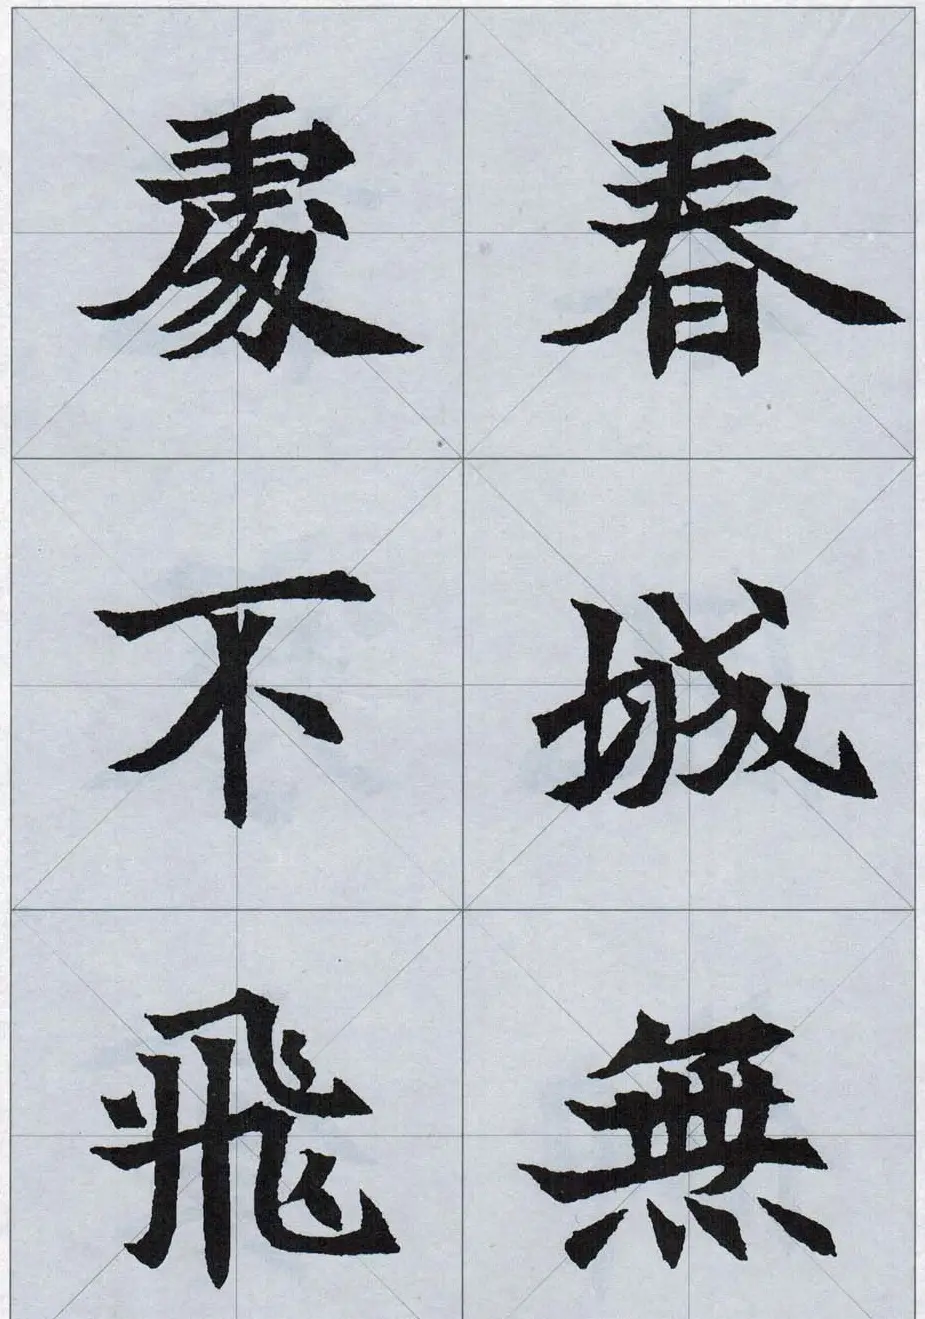 春城無
處不飛